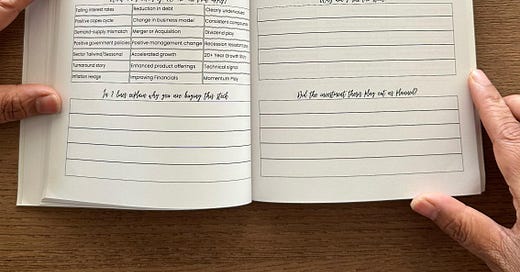 Falling interest rates Reduction in debt Clearly undervalued
Positive capex cycle Change in business model Consistent compounder
Demand-supply mismatch Merger or Acquisition Dividend play
Positive government policies Positive management change Recession resistant
Sector Tailwind/Seasonal Accelerated growth 20+ Year Growth Story
Turnaround story Enhanced product offerings Technical signal
Inflation hedge Improving Financials Momentum Play
In 2 lines explain why you are buying this stock
Did the investment thesis play out as planned?